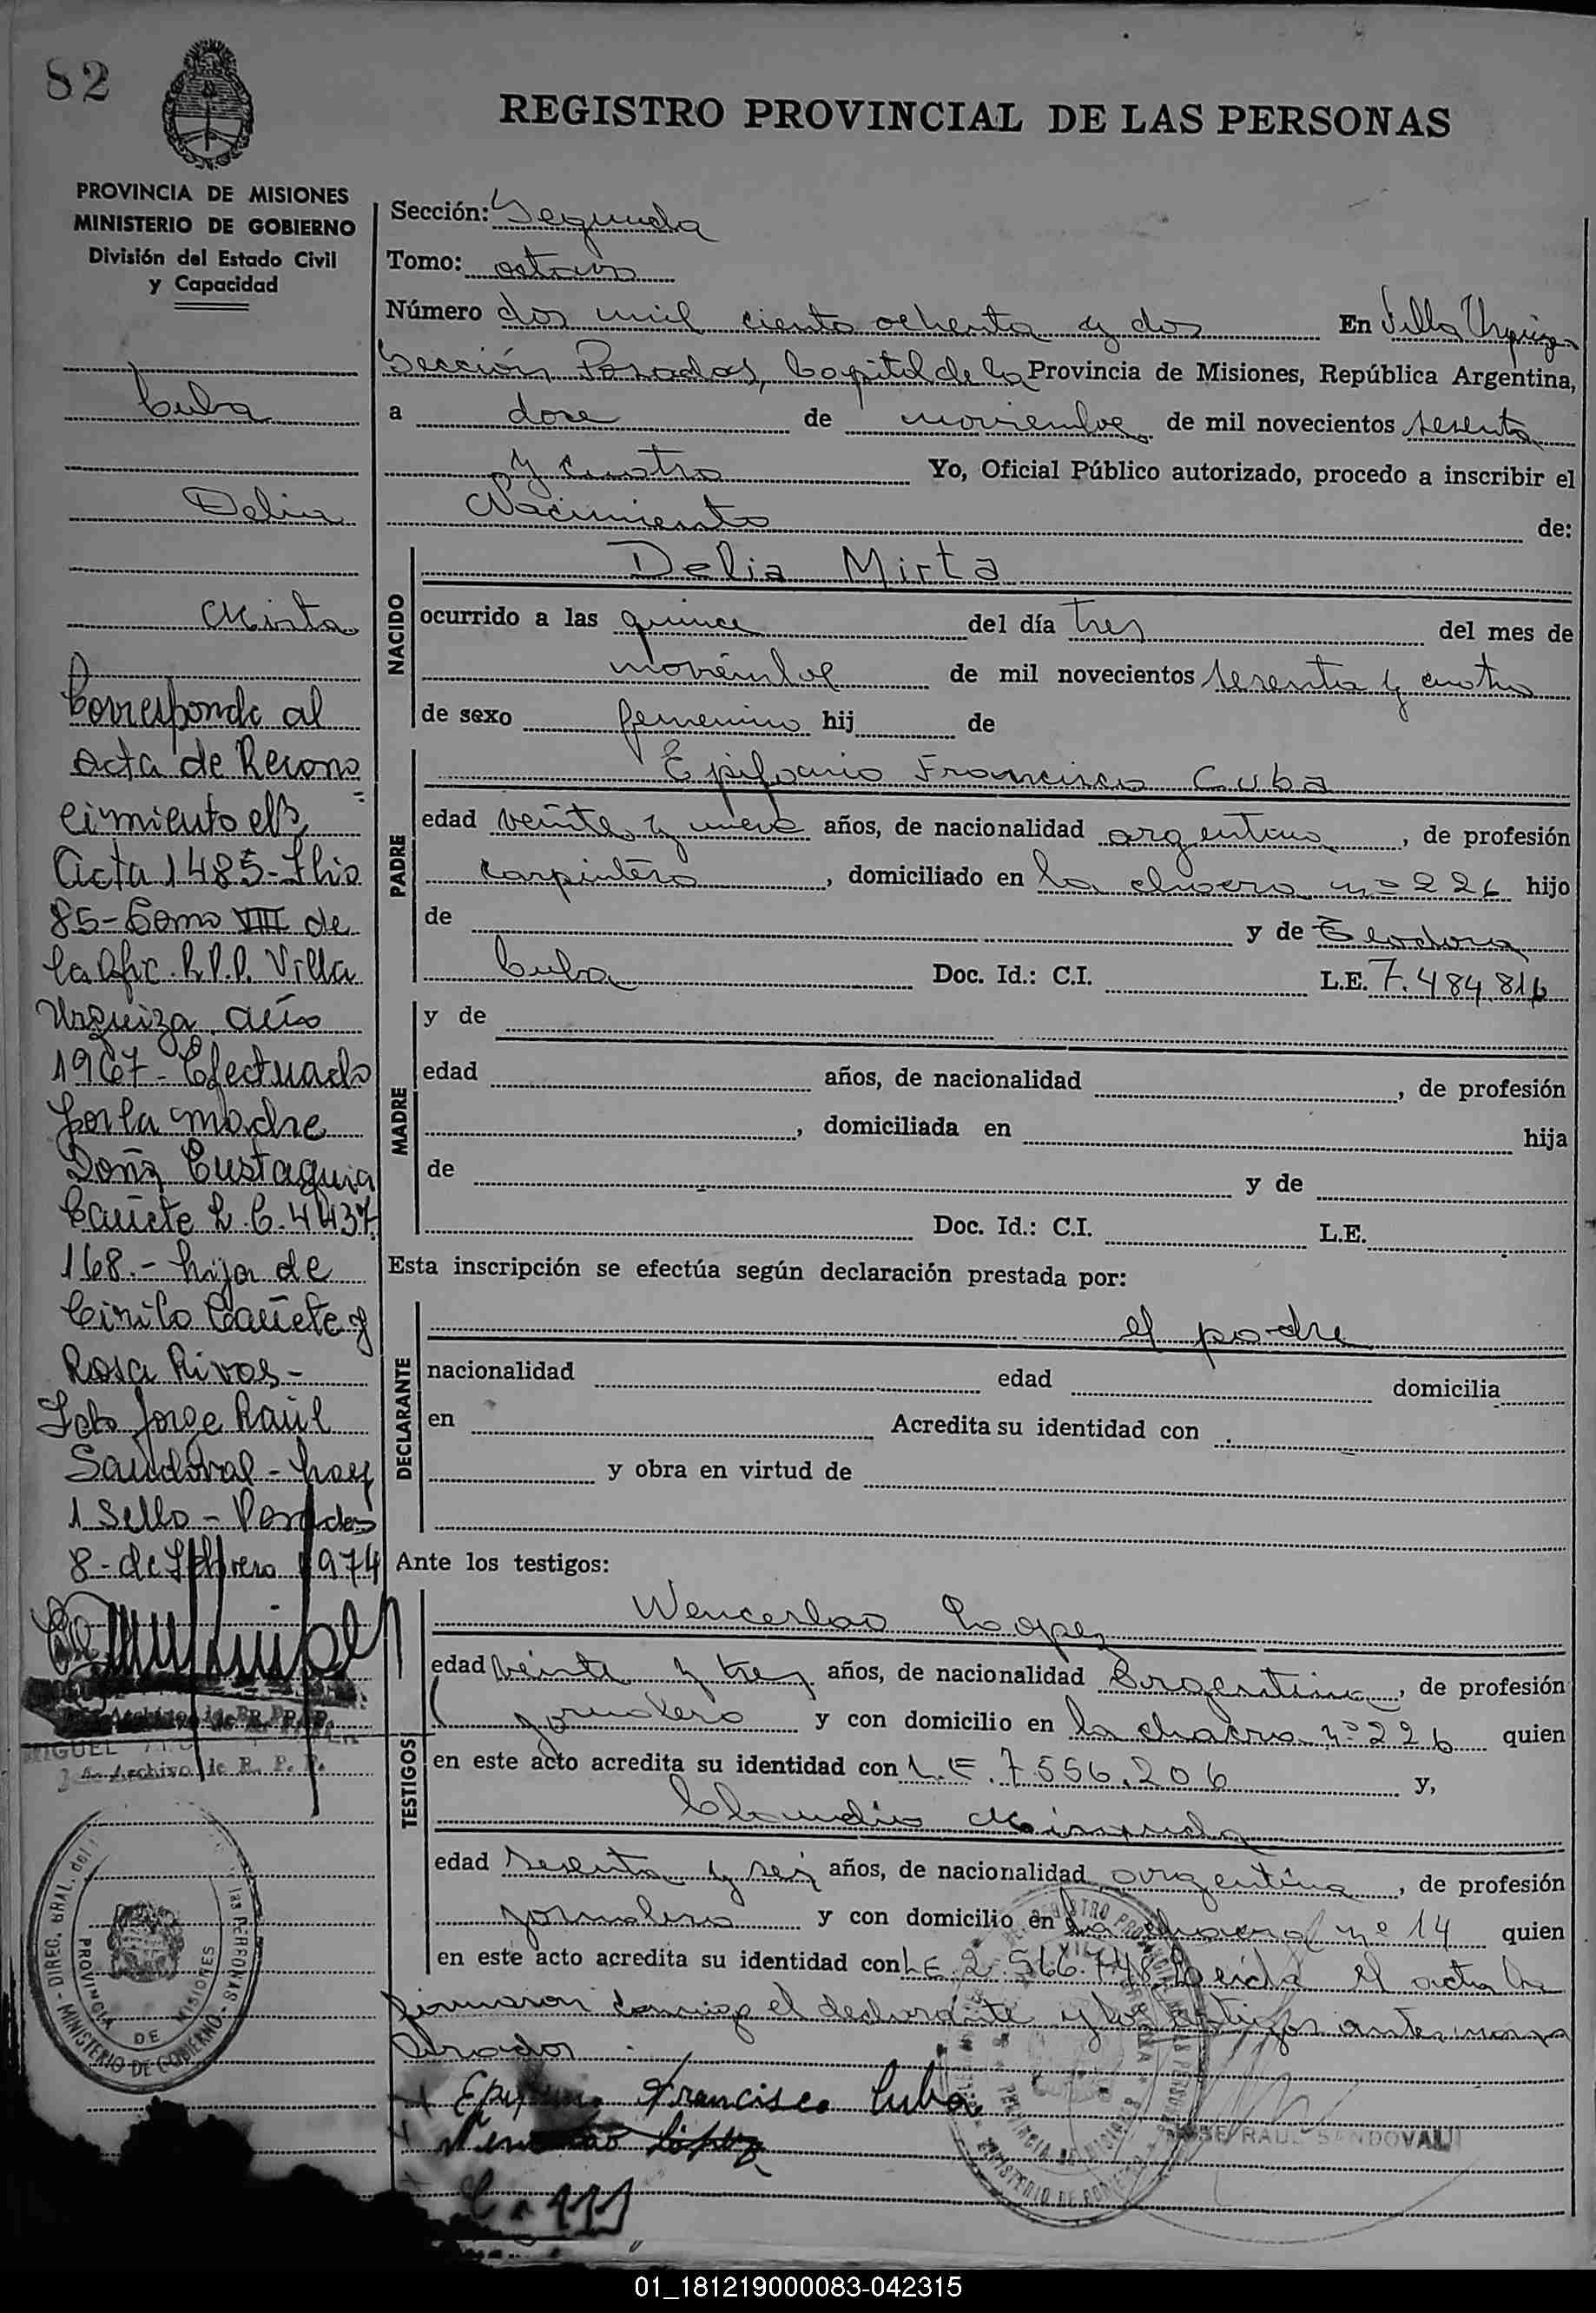 82
REGISTRO PROVINCIAL DE LAS PERSONAS
PROVINCIA DE MISIONES
MINISTERIO DE GOBIERNO
División del Estado Civil
y Capacidad
Cuba
Delia
Mirta
Corresponde al
acta de Recono
cimiento el
Acta 1485- Flio
85- Tomo VIII de
la Ofic. R.P.P. Villa
Urquiza. año
1967- Efectuado
por la madre
Doña Eustaquia
Cañete L.C. 4437
168.- hija de
Cirilo Cañete y
Rosa Rivas-
Fdo Jorge Raúl
Sandoval- hay
1 Sello- Posadas
8- de Febrero 1974
Archivo de R. P. P.
MIGUEL
Archivo de R. P. P.
DIREC. GRAL. del las PERSONAS - MINISTERIO DE GOBIERNO
PROVINCIA DE MISIONES
Sección: Segunda
Tomo: octavo
Número dos mil ciento ochenta y dos En Villa Urquiza
Sección Posadas, Capital de la Provincia de Misiones, República Argentina,
a doce de noviembre de mil novecientos sesenta
y cuatro Yo, Oficial Público autorizado, procedo a inscribir el
Nacimiento de:
NACIDO
Delia Mirta
ocurrido a las quince del día tres del mes de
noviembre de mil novecientos sesenta y cuatro
de sexo femenino hij de
PADRE
Epifanio Francisco Cuba
edad veinte y nueve años, de nacionalidad argentina, de profesión
carpintero, domiciliado en la chacra nº 226 hijo
de y de Teodora
Cuba Doc. Id.: C.I. L.E. 7.484.816
MADRE
y de
edad años, de nacionalidad , de profesión
, domiciliada en hija
de y de
Doc. Id.: C.I. L.E.
Esta inscripción se efectúa según declaración prestada por:
DECLARANTE
el padre
nacionalidad edad domicilia
en Acredita su identidad con
y obra en virtud de
Ante los testigos:
TESTIGOS
Wenceslao Lopez
edad veinte y tres años, de nacionalidad Argentina, de profesión
jornalero y con domicilio en la chacra nº 226 quien
en este acto acredita su identidad con L.E. 7556.206 y,
Claudio Miranda
edad sesenta y seis años, de nacionalidad argentina, de profesión
jornalero y con domicilio en la chacra nº 14 quien
en este acto acredita su identidad con L.E. 2.566.748 Leida el acta la
firmaron conmigo el declarante y los testigos antes mencionados
Francisco Cuba
López
RAUL SANDOVAL
PROVINCIA DE MISIONES
01_181219000083-042315